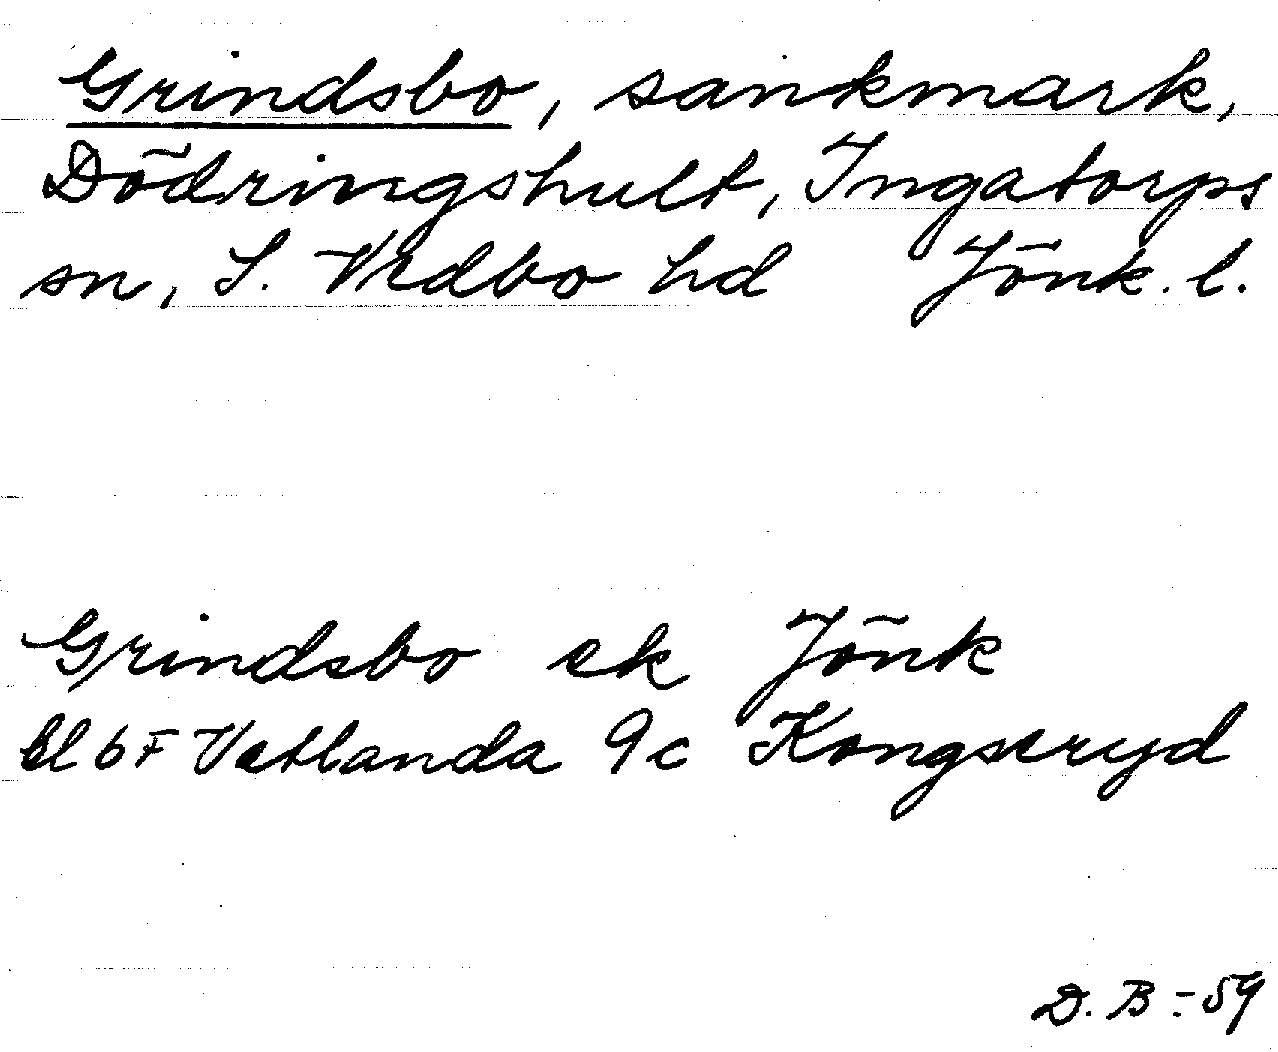 Grindsbo, sankmark,
Dödringshult, Ingatorps
sn, S. Vedbo hd Jönk. l.
Grindsbo ek Jönk
bl 6F Vetlanda 9c Kongseryd
D. B -59